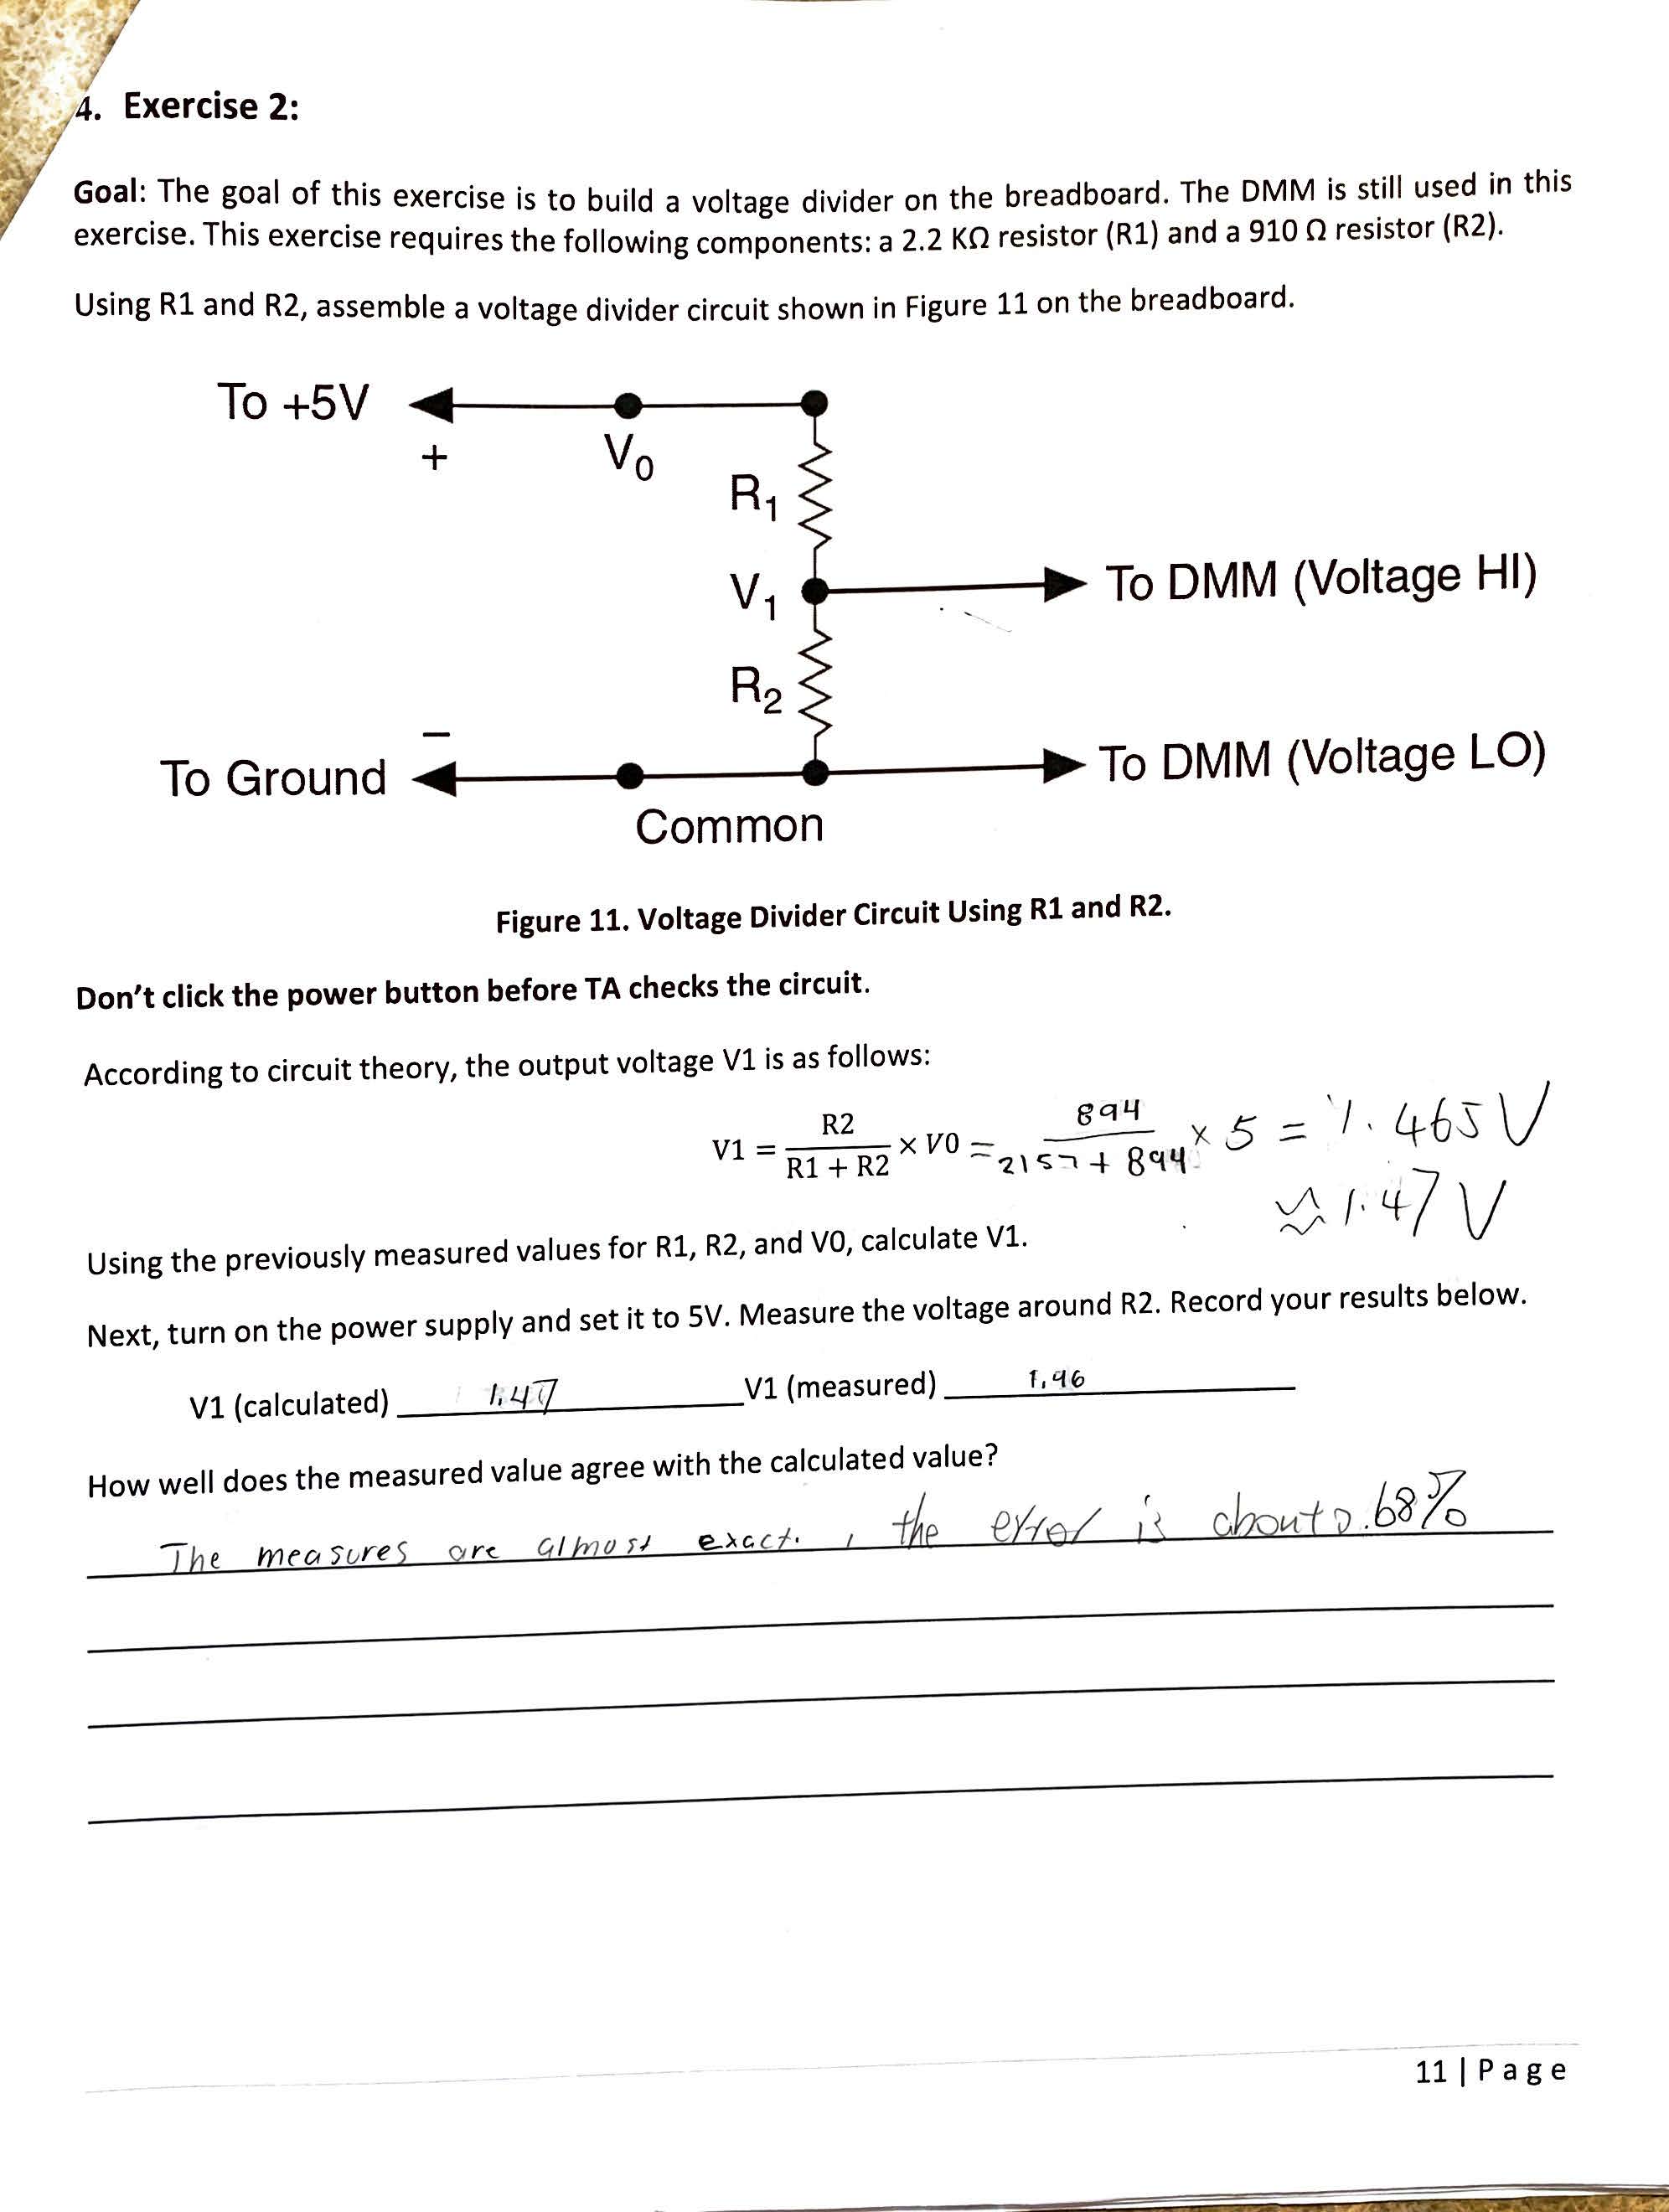 4. Exercise 2:
Goal: The goal of this exercise is to build a voltage divider on the breadboard. The DMM is still used in this
exercise. This exercise requires the following components: a 2.2 KΩ resistor (R1) and a 910 Ω resistor (R2).
Using R1 and R2, assemble a voltage divider circuit shown in Figure 11 on the breadboard.
To +5V
+
V0
R1
V1
To DMM (Voltage HI)
R2
−
To Ground
To DMM (Voltage LO)
Common
Figure 11. Voltage Divider Circuit Using R1 and R2.
Don't click the power button before TA checks the circuit.
According to circuit theory, the output voltage V1 is as follows:
V1 = R2 / (R1 + R2) × V0 = 894 / (2157 + 894) × 5 = 1.465 V
≈ 1.47 V
Using the previously measured values for R1, R2, and V0, calculate V1.
Next, turn on the power supply and set it to 5V. Measure the voltage around R2. Record your results below.
V1 (calculated) 1.47 V1 (measured) 1.46
How well does the measured value agree with the calculated value?
The measures are almost exact. , the error is about 0.68%
11 | Page